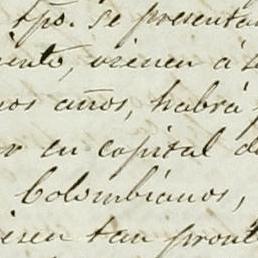 tpo. se presenta
iento, vienen á s
nos años, habrá
r en capital d
Colombianos,
isen tan pront